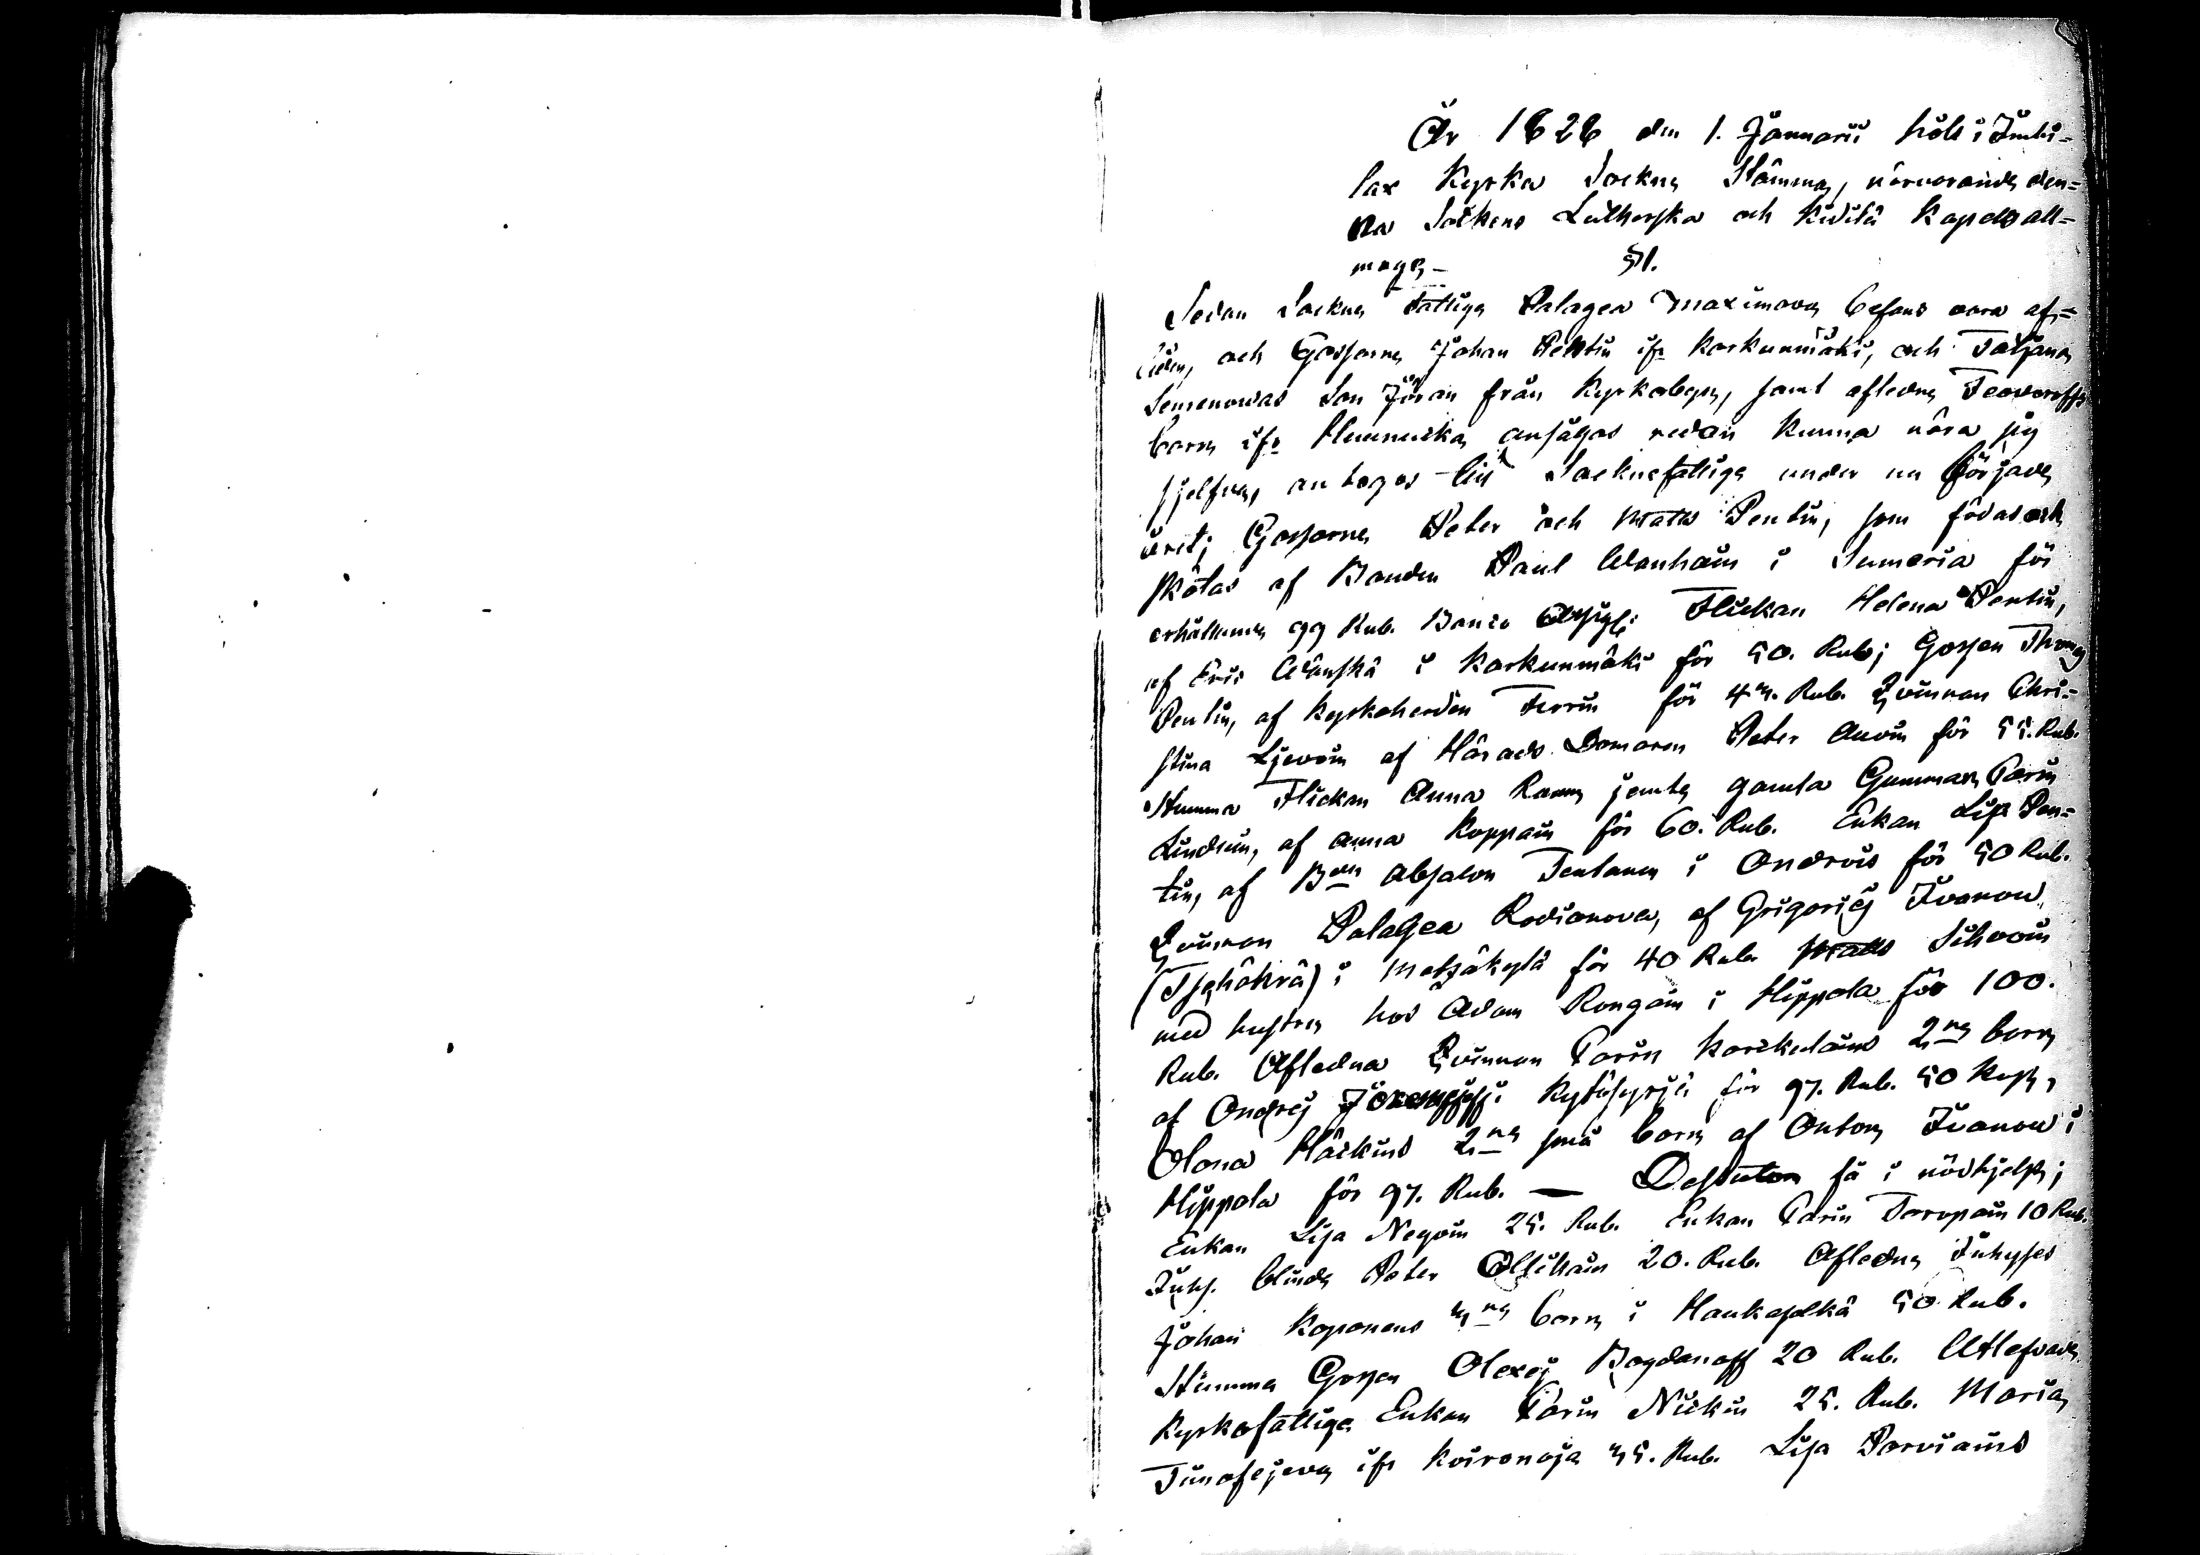 År 1828 den 1. Januarii hölls i Imbi-
lax Kyrka Sockne Stämma, närvarande den-
na Sockens Lutherska och Kidilä Kapells all-
moge, — §1.
Sedan Sockne Fattiga Palagea Maximova befans vara af-
liden, och Gossarne Johan Pentin ifr Korkunmäki, och Tatjana
Semenowas Son Jöran från Kyrkobyn, samt afledne Feodoroffs
barn ifr Hunnukka, ansågos redan kunna nära sig
sjelfve, antogos till Socknefattiga under nu började
året; Gossarne Peter och Matts Pentin, som födas och
skötas af Bonden Paul Wanhain i Sumeria för
erhållna 99 Rub. Banco Assigl: Flickan Helena Pentin,
af Eric i Korkunmäki för 50. Rub; Gossen Thomas
Pentin, af Kyrkoherden för 45. Rub. Qvinnan Chri-
stina af Härads Domaren Peter Auvin för 55. Rub.
Stumma Flickan Anna jemte gamla Gumman Carin
af Anna Koppain för 60. Rub. Enkan Lisa Pen-
tin, af Bden Absalon i Ondrois för 50 Rub.
Qvinnan Palagea Rodionova, af Grigorig Ivanow
(Tschökrä) i Metsäkylä för 40 Rub. Matts Sihvoin
med hustru hos Adam Rongain i Hippola för 100.
Rub. Afledna Qvinnan Carin 2ne barn
af Ondrej i Kytösyrjä för 97. Rub. 50 Kop,
Olona Häckins 2ne små barn af Anton Ivanow i
Hippola för 97. Rub. — Dessutan få i nödhjelp;
Enkan Lisa Negoin 25. Rub. Enkan Carin Toropain 10 Rub.
Inhs. blinde Peter 20. Rub. Afledne Inhyses
Johan Koponens 3ne barn i Haukaselkä 50 Rub.
Stumma Gossen Olexej Bogdanoff 20 Rub. Utlefvade
Kyrkofattige Enkan Carin Nickin 25. Rub. Maria
Timofejeva ifr Koironoja 35. Rub. Lisa Parviains